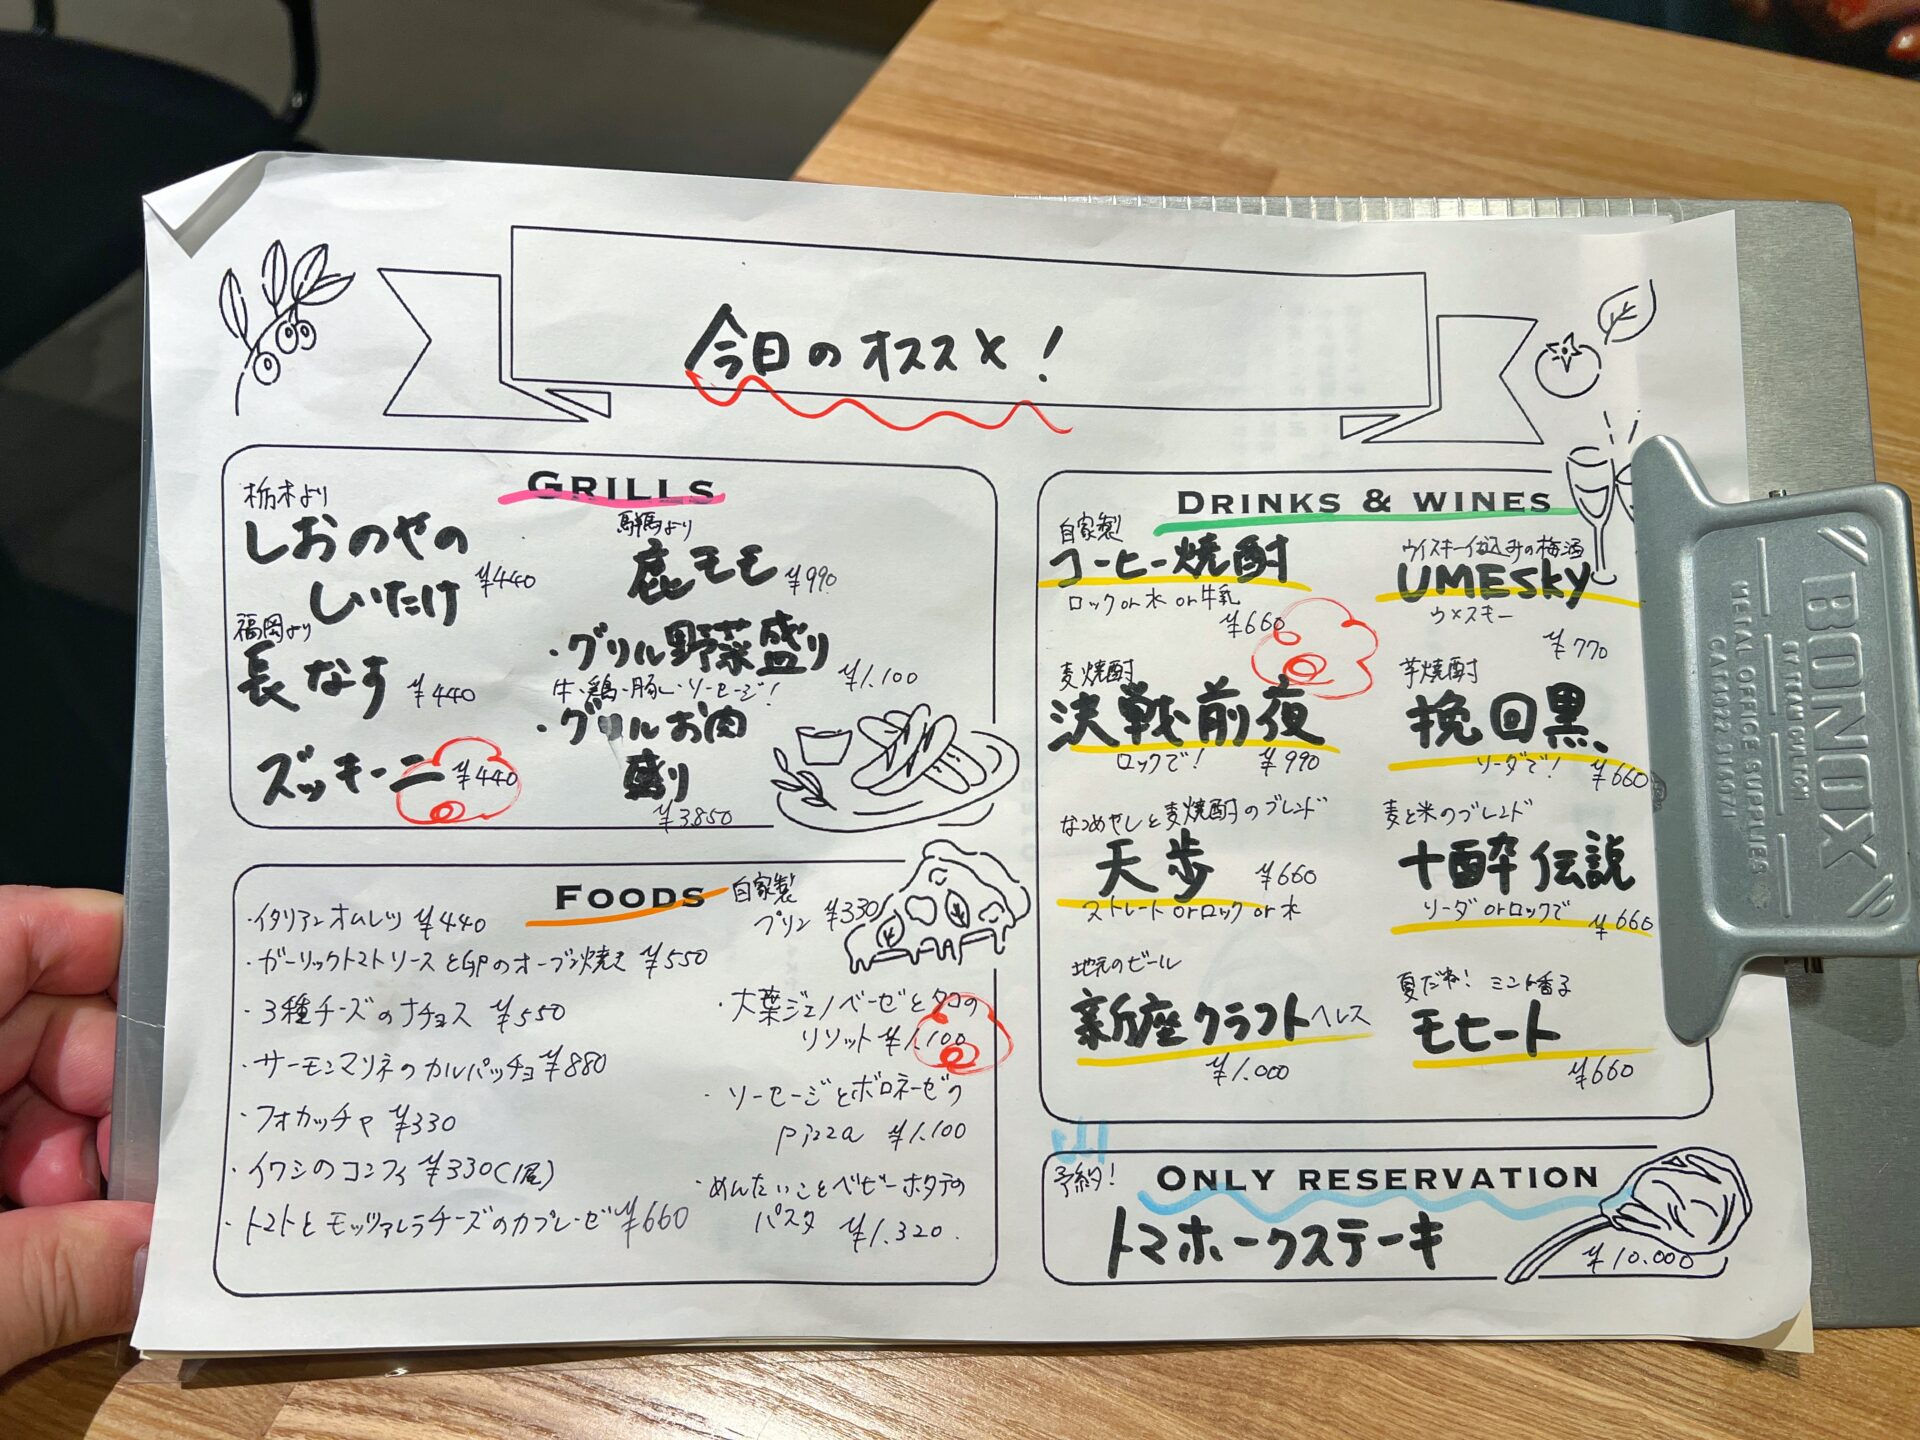 今日のオススメ!
GRILLS
栃木より
しおのやの
しいたけ ¥440
福岡より
長なす ¥440
ズッキーニ ¥440
より
鹿モモ ¥990
・グリル野菜盛り
¥1.100
牛・鶏・豚・ソーセージ!
・グリルお肉
盛り
¥3850
FOODS
・イタリアンオムレツ ¥440
・ガーリックトマトソースとGPのオーブン焼き ¥550
・3種チーズのナチョス ¥550
・サーモンマリネのカルパッチョ ¥880
・フォカッチャ ¥330
・イワシのコンフィ ¥330(1尾)
・トマトとモッツァレラチーズのカプレーゼ ¥660
自家製
プリン ¥330
・大葉ジェノベーゼとタコの
リゾット ¥1.100
・ソーセージとボロネーゼの
pizza ¥1.100
・めんたいことベビーホタテの
パスタ ¥1.320.
DRINKS & WINES
自家製
コーヒー焼酎
ロックor水or牛乳
¥660
麦焼酎
決戦前夜
ロックで! ¥990
なつめやしと麦焼酎のブレンド
天歩 ¥660
ストレートorロックor水
地元のビール
新座クラフトヘレス
¥1.000
ウイスキー仕込みの梅酒
UMESKY
ウメスキー
¥770
芋焼酎
挽回黒
ソーダで! ¥660
麦と米のブレンド
十酔伝説
ソーダorロックで ¥660
夏だね! ミント香る
モヒート
¥660
予約!
ONLY RESERVATION
トマホークステーキ
¥10.000
BONOX
METAL OFFICE SUPPLIES